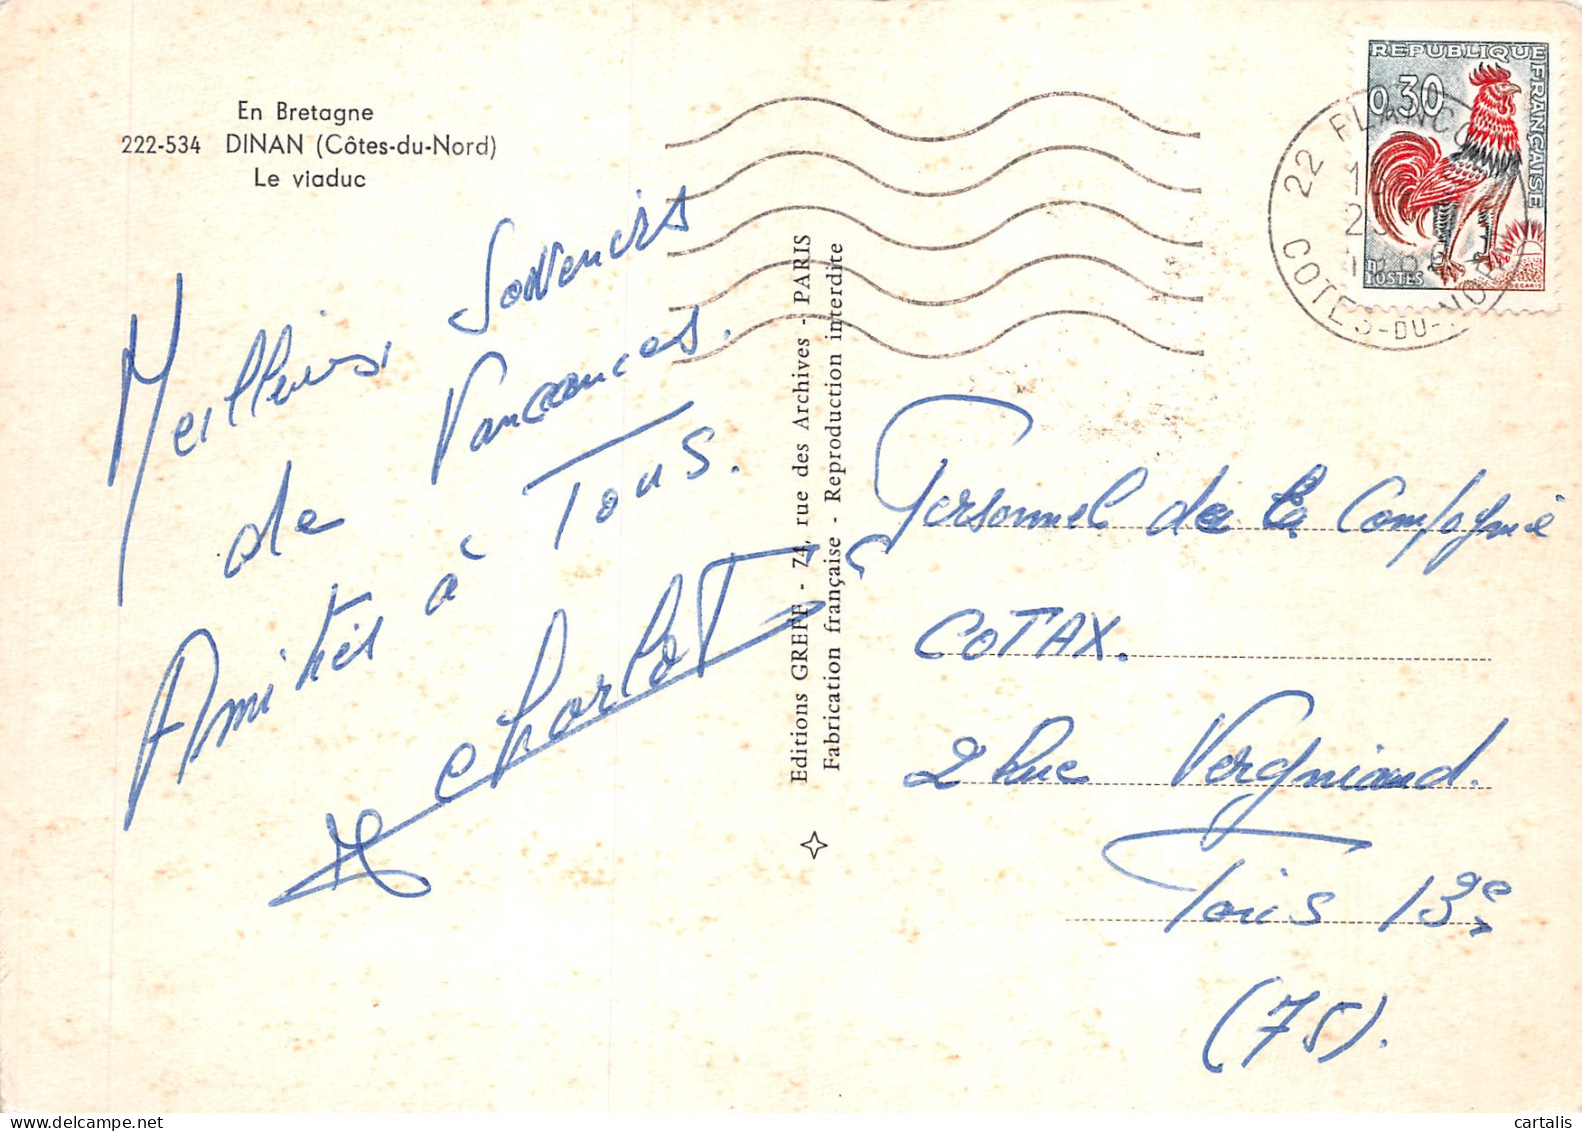 En Bretagne
222-534 DINAN (Côtes-du-Nord)
Le viaduc
Meilleurs Souvenirs
de Vancances.
Amitiés à Tous.
Charlot
Editions GREFF - 74, rue des Archives - PARIS
Fabrication française - Reproduction interdite
REPUBLIQUE FRANÇAISE
0,30
POSTES
DECARIS
22
COTES-DU-NORD
Personnel de la Compagnie
COTAX.
2 Rue Vergniaud.
Paris 13e
(75).
cartalis